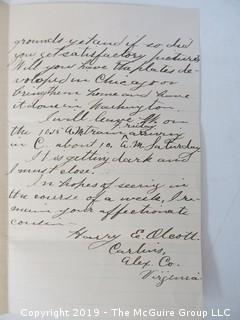 grounds yet and if so, did
you get satisfactory pictures
Will you have the plates de-
veloped in Chicago or
bring them home and have
it done in Washington.
I will leave W. on
Friday
the 10.15 A.M. train arriving
in C. about 10. A.M. Saturday
It is getting dark and
I must close.
In hopes of seeing in
the course of a week, I re-
main your affectionate
cousin
Henry E. Alcott.
Carlins,
Alex. Co.
Virginia
Copyright 2019 - The McGuire Group LLC